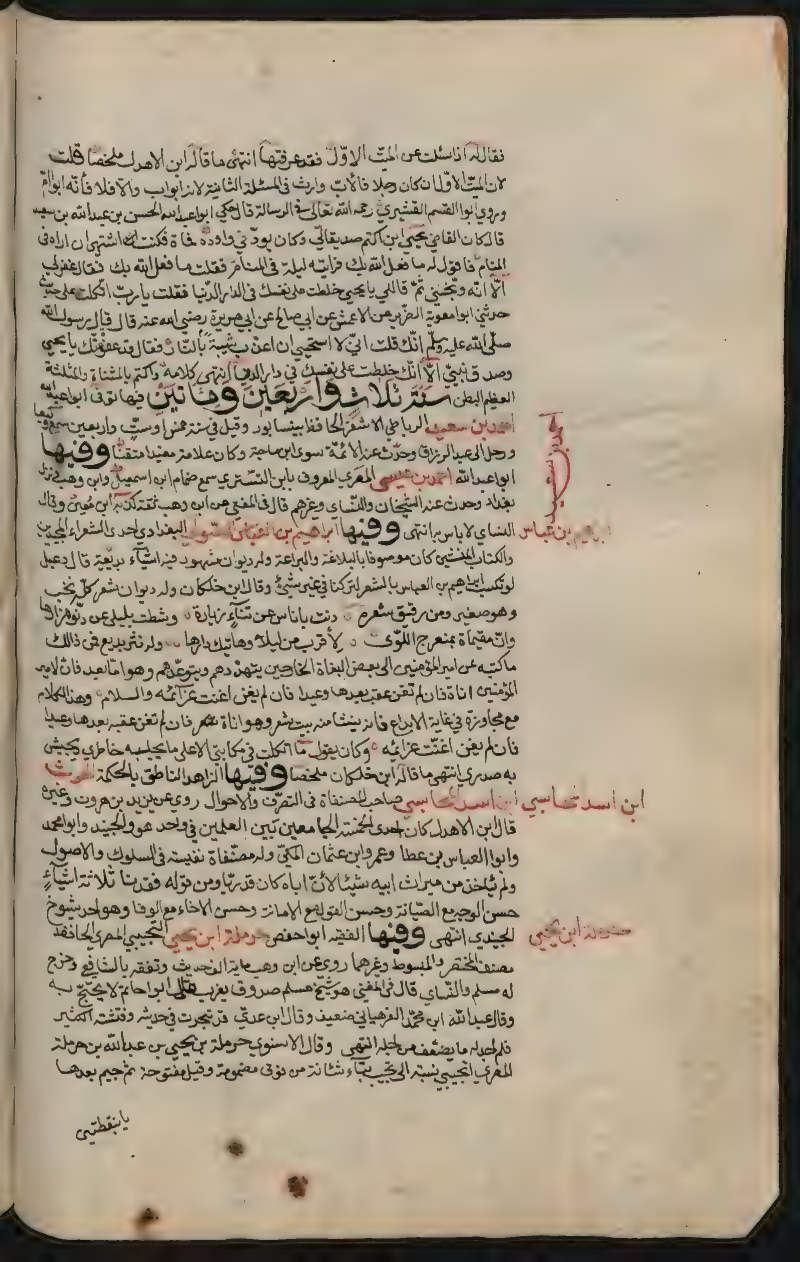 فقال له اذا سئلت عن الميت الاول فقد عرفتها انتهى ما قاله ابن الاهدل ملخصا قلت
لان الميت الاول ان كان رجلا فالاب وارث في المسئلة الثانية لانه ابو اب والا فلا فانه ابو ام
وروي ابو القسم القشيري رحمه الله تعالى في الرسالة قال حكي ابو عبد الله الحسن بن عبد الله بن سعيد
قال كان القاضي يحيى ابن اكثم صديقا لي وكان يودني واوده فمات فكنت اشتهي ان اراه في
المنام فاقول له ما فعل الله بك فرايته ليلة في المنام فقلت ما فعل الله بك فقال غفر لي
الا انه وبخني ثم قال لي يا يحيى خلطت على نفسك في الدار الدنيا فقلت يا رب اتكلت على حديث
حدثني ابو معوية الضرير عن الاعمش عن ابي صالح عن ابي هريرة رضي الله عنه قال قال رسول الله
صلى الله عليه وسلم انك قلت اني لا استحيي ان اعذب شيبة بالنار فقال قد عفوت عنك يا يحيى
وصدق نبيي الا انك خلطت على نفسك في دار الدنيا انتهى كلامه واكثم بالمثناة والمثلثة
العظيم البطن سنة ثلاث واربعين ومائتين فيها توفي ابو عبد الله
احمد بن سعيد الرباطي الاشقر الحافظ بنيسابور وقيل في سنة خمس او ست واربعين سمع وكيعا
ورحل الى عبد الرزاق وحدث عنه الائمة سوى ابن ماجة وكان علامة مفيدا متقنا وفيها
ابو عبد الله احمد بن عيسى المصري المعروف بابن التستري سمع ضمام ابن اسمعيل وابن وهب نزل
بغداد وحدث عنه الشيخان والنساي وغيرهم قال في المغني عن ابن وهب ثقة كذبه ابن معين وقال
النساي لا باس به انتهى وفيها ابراهيم بن العباس الصولي البغدادي احدى الشعراء المجيدين
والكتاب المنشئين كان موصوفا بالبلاغة والبراعة وله ديوان مشهود فيه اشياء بديعة قال دعبل
لو تكسب ابراهيم بن العباس بالشعر لتركنا في غير شيئ وقال ابن خلكان وله ديوان شعر كله نخب
وهو صغير ومن رقيق شعره دنت باناس عن تناء زيارة وشطت بليلى عن دنو مزارها
وان مقيماة بمنعرج اللوى لاقرب من ليلا وهاتيك دارها وله نثر بديع في ذالك
ما كتبه عن امير المؤمنين الى بعض البغاة الخارجين يتهددهم ويتوعدهم وهو اما بعد فان لامير
المؤمنين اناة فان لم تغن عقب بعدها وعيدا فان لم يغن اغنت عزائمه والسلام وهذا الكلام
مع مجاوزة في غاية الابداع فانه ينشا منه بيت شعر وهو اناة فان لم تغن عقب بعدها وعيدا
فان لم يغن اغنت عزائمه وكان يقول ما اتكلت في مكاتبتي الا على ما يجلبه خاطري ويجيش
به صدري انتهى ما قاله ابن خلكان ملخصا وفيها الزاهد الناطق بالحكمة الحرث
ابن اسد المحاسبي صاحب المصنفاة في التصوف والاحوال روي عن يزيد بن هرون وغيره
قال ابن الاهدل كان احدى الخمسة الجامعين بين العلمين في واحد هو والجنيد وابو محمد
وابو العباس بن عطا وعمرو ابن عثمان المكي وله مصنفاة نفيسة في السلوك والاصول
ولم ياخذ من ميراث ابيه شيئا لان اباه كان قدريا ومن قوله فقدنا ثلاثة اشياء
حسن الوجه مع الصيانة وحسن القول مع الامانة وحسن الاخاء مع الوفا وهو احد شيوخ
الجنيدي انتهى وفيها الفقيه ابو حفص حرملة ابن يحيى التجيبي المصري الحافظ
مصنف المختصر والمبسوط وغيرهما روي عن ابن وهب الحديث وتفقه بالشافعي وخرج
له مسلم والنساي قال في المغني هو شيخ مسلم صدوق يغرب قال ابو حاتم لا يحتج به
وقال عبد الله ابن محمد الفرهياني ضعيف وقال ابن عدي قد تبحرت في حديثه وفتشته الكثير
فلم اجد له ما يضعف من اجله انتهى وقال الاسنوي حرملة بن يحيى بن عبد الله بن حرملة
المصري التجيبي نسبة الى تجيب بتاء مثناة من فوق مضمومة وقيل مفتوحة ثم جيم بعدها
يا بنقطتين
احمد بن سعيد
ابراهيم بن عباس
ابن اسد محاسبي
حرملة ابن يحيى